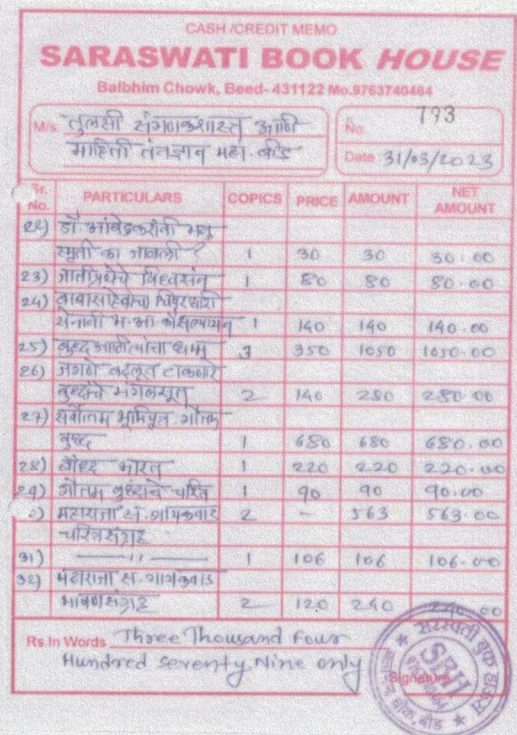 CASH/CREDIT MEMO
SARASWATI BOOK HOUSE
Balbhim Chowk, Beed-431122 Mo.9763740464
M/s. तुलसी संगणकशास्त्र आणि
माहिती तंत्रज्ञान महा. बीड
No. 793
Date 31/03/2023
Sr. No. PARTICULARS COPICS PRICE AMOUNT NET AMOUNT
22) डॉ. आंबेडकरांनी मनु
स्मृती का जाळली ? 1 30 30 30.00
23) जातीप्रथेचे विध्वसंन 1 80 80 80.00
24) बाबासाहेबांचा
1 140 140 140.00
25) बुध्द आणि त्यांचा धम्म 3 350 1050 1050.00
26) जगणे बदलून टाकणारे
बुध्दांचे मंगलसूत्त 2 140 280 280.00
27) सर्वोत्तम भूमिपुत्र गौतम
बुध्द 1 680 680 680.00
28) बौध्द भारत 1 220 220 220.00
29) गौतम बुध्दाचे चरित्र 1 90 90 90.00
) महाराजा स. गायकवाड 2 - 563 563.00
चरित्रसंग्रह
31) —〃— 1 106 106 106.00
32) महाराजा स. गायकवाड
भाषणसंग्रह 2 120 240 240.00
Rs.In Words Three Thousand Four
Hundred Seventy Nine only
Signature
सरस्वती बुक हाऊस
SBH
चौक, बीड